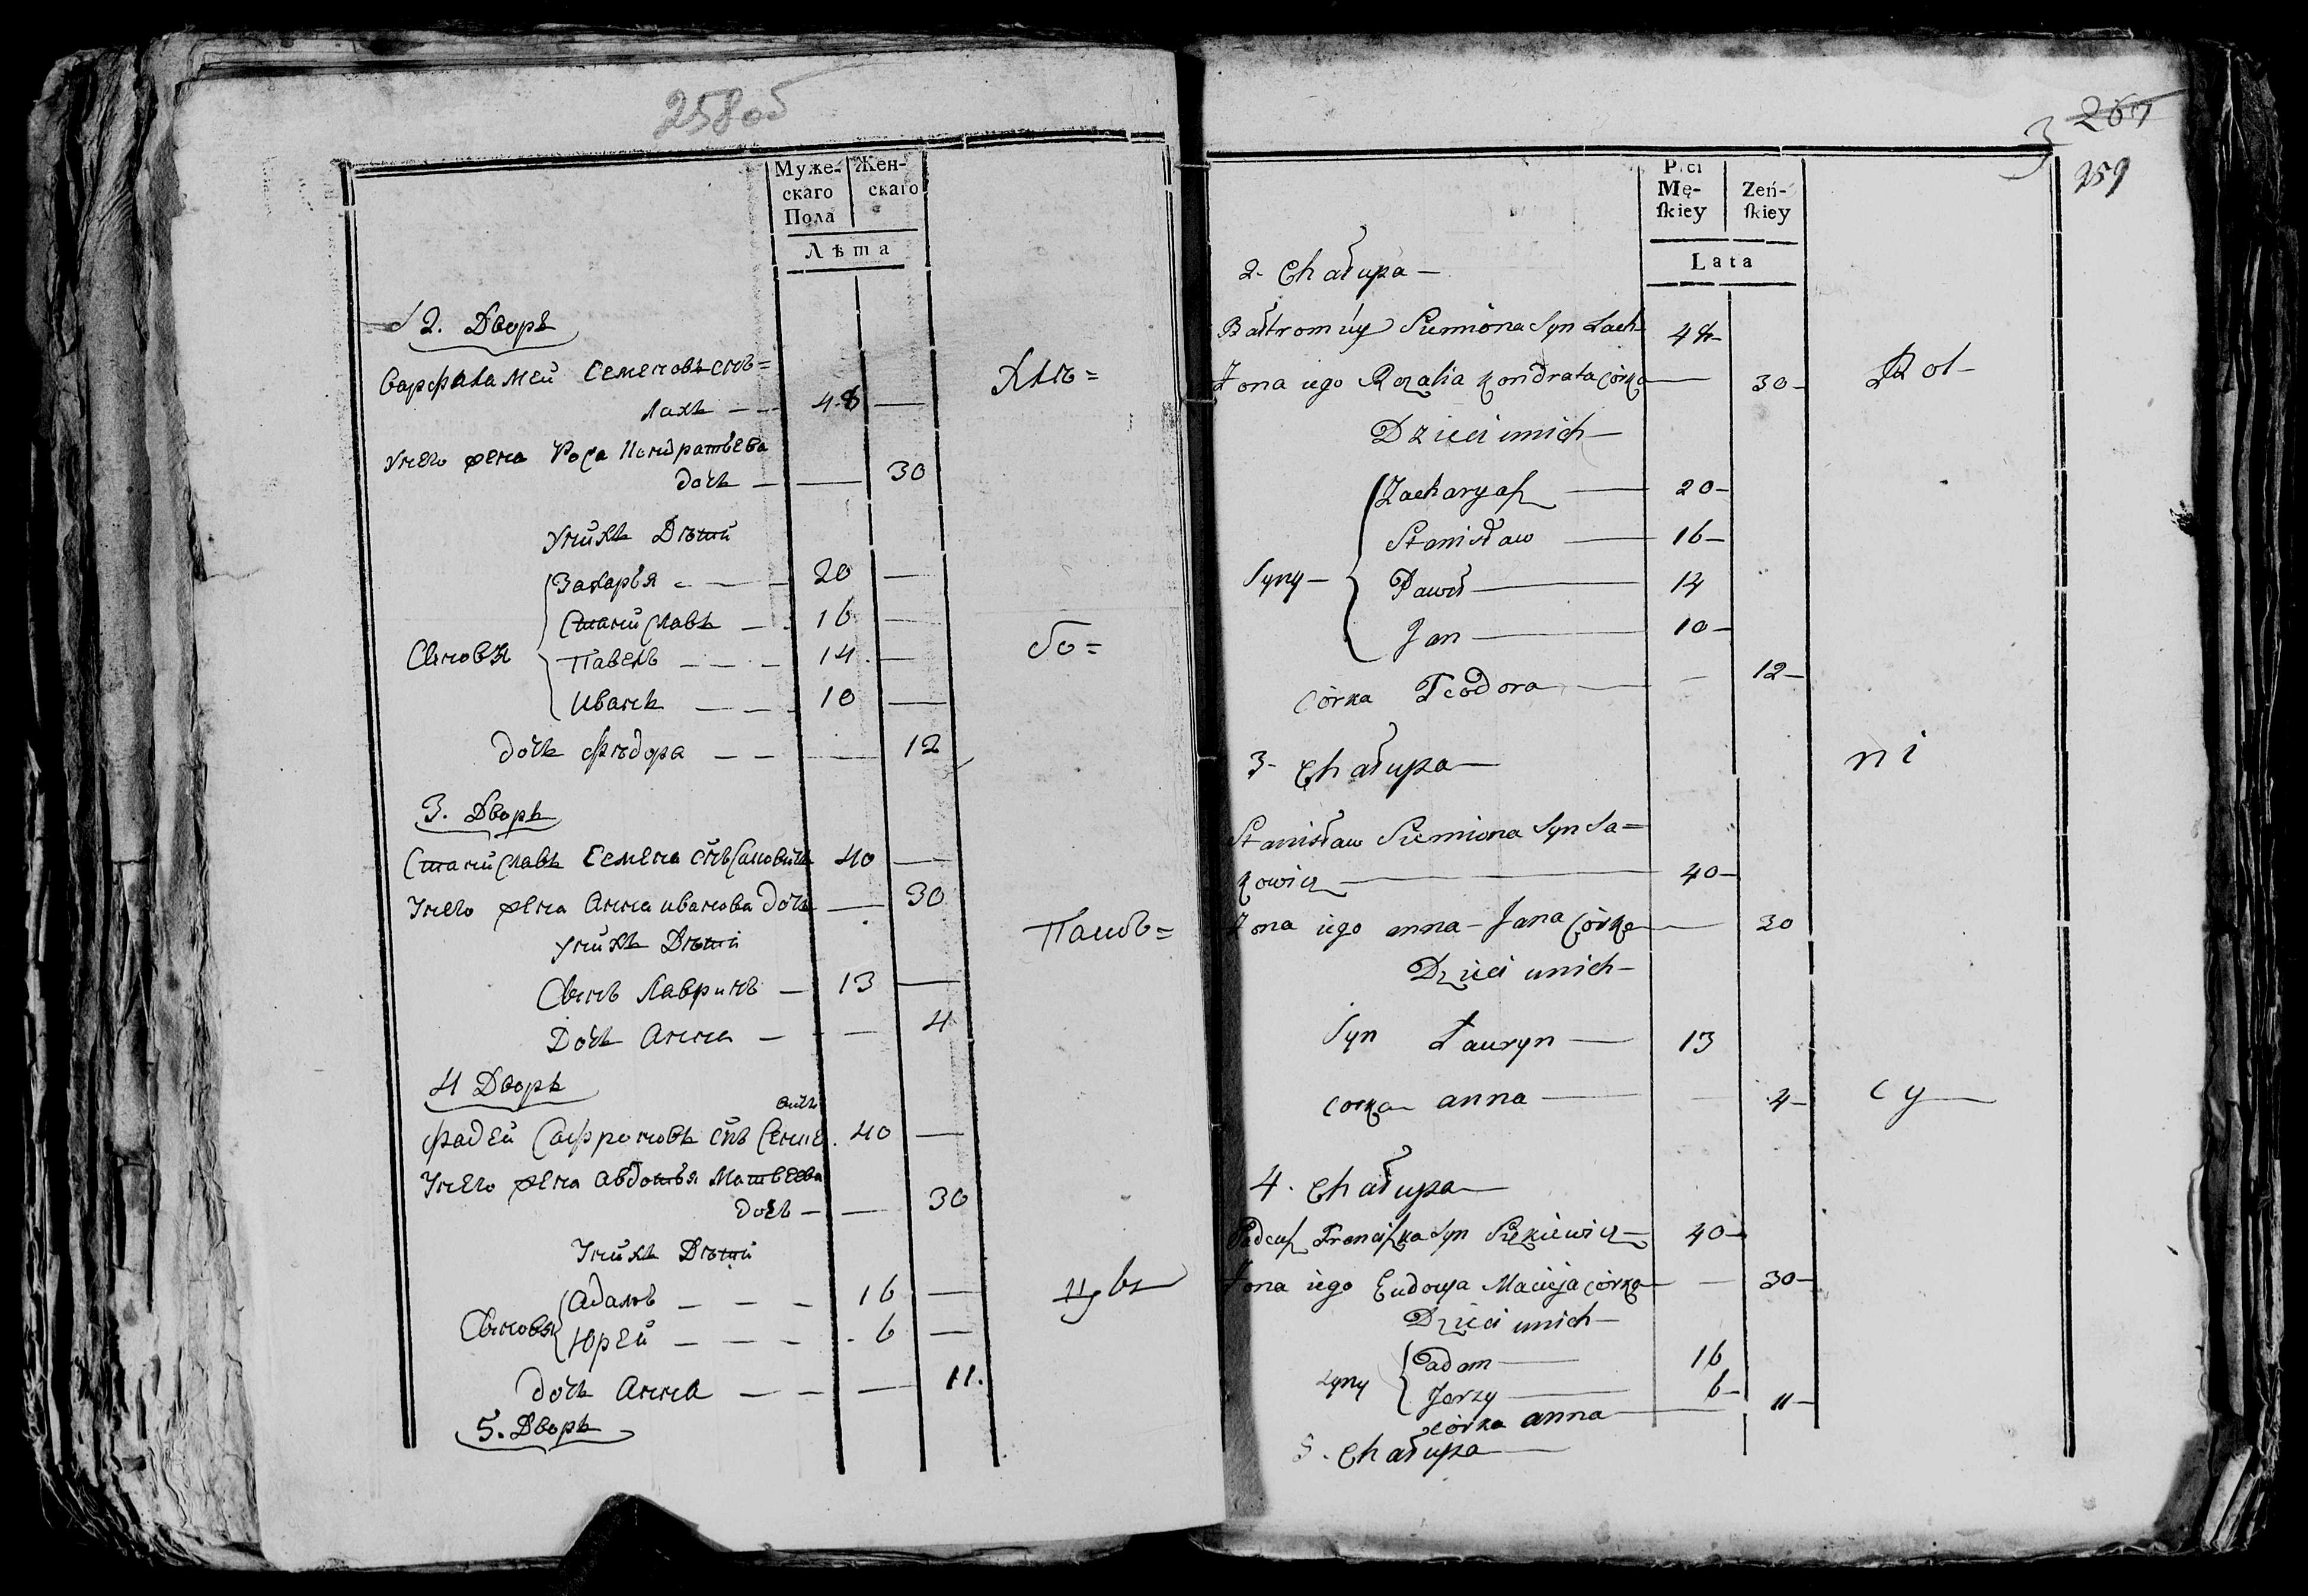 258 об
Муже-
скаго
Пола
Жен-
скаго
Лѣта
2. Дворъ
Варфаламей Семеновъ снъ=
Лахъ — 48 —
Унего жена Роза Кондратьева
дочь — — 30
Унихъ Дѣти
Захарья — 20 —
Станиславъ — 16 —
Сыновья
Павелъ — 14 —
Иванъ — 10 —
дочь Фѣдора — — 12
Хлѣ=
бо=
3. Дворъ
Станиславъ Семена снъ Саковичъ 40 —
Унего жена Анна иванова дочь — 30
Унихъ Дѣти
Сынъ Лавринъ — 13 —
Дочь Анна — — 4
Паш=
4 Дворъ
вичъ
Фадей Сафроновъ снъ Сенке 40 —
Унего жена Авдотья Матвеева
дочь — — 30
Унихъ Дѣти
Сыновья
Адамъ — 16 —
Юрей — 6 —
дочь Анна — — 11.
цы
5. Дворъ
3
267
259
Płci
Mę-
ſkiey
Zeń-
ſkiey
Lata
2- Chałupa —
Bałtromiey Siemiona Syn Lach 48-
Zona iego Rozalia Kondrata córka — 30-
Dzieci unich —
Zacharyaſz — 20-
Stanisław — 16-
Syny —
Paweł — 14
Jan — 10-
Córka Teodora — - 12-
Rol-
3- Chałupa —
ni
Stanisław Siemiona Syn Sa=
kowicz — 40-
Zona iego anna - Jana Córka — 30
Dzieci unich —
Syn Ławryn — 13
corka anna — 4-
cy —
4. Chałupa —
Tadeuſz Franciſzka Syn Sienkiewicz — 40-
Zona iego Eudocya Macieja córka — 30-
Dzieci unich —
Syny
adam — 16
Jerzy — 6-
córka anna — 11-
5. Chałupa —